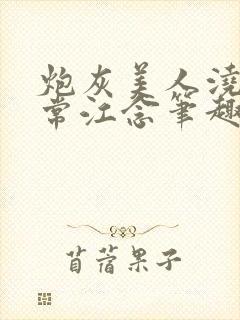 炮灰美人浇
常江念笔趣
苜蓿果子